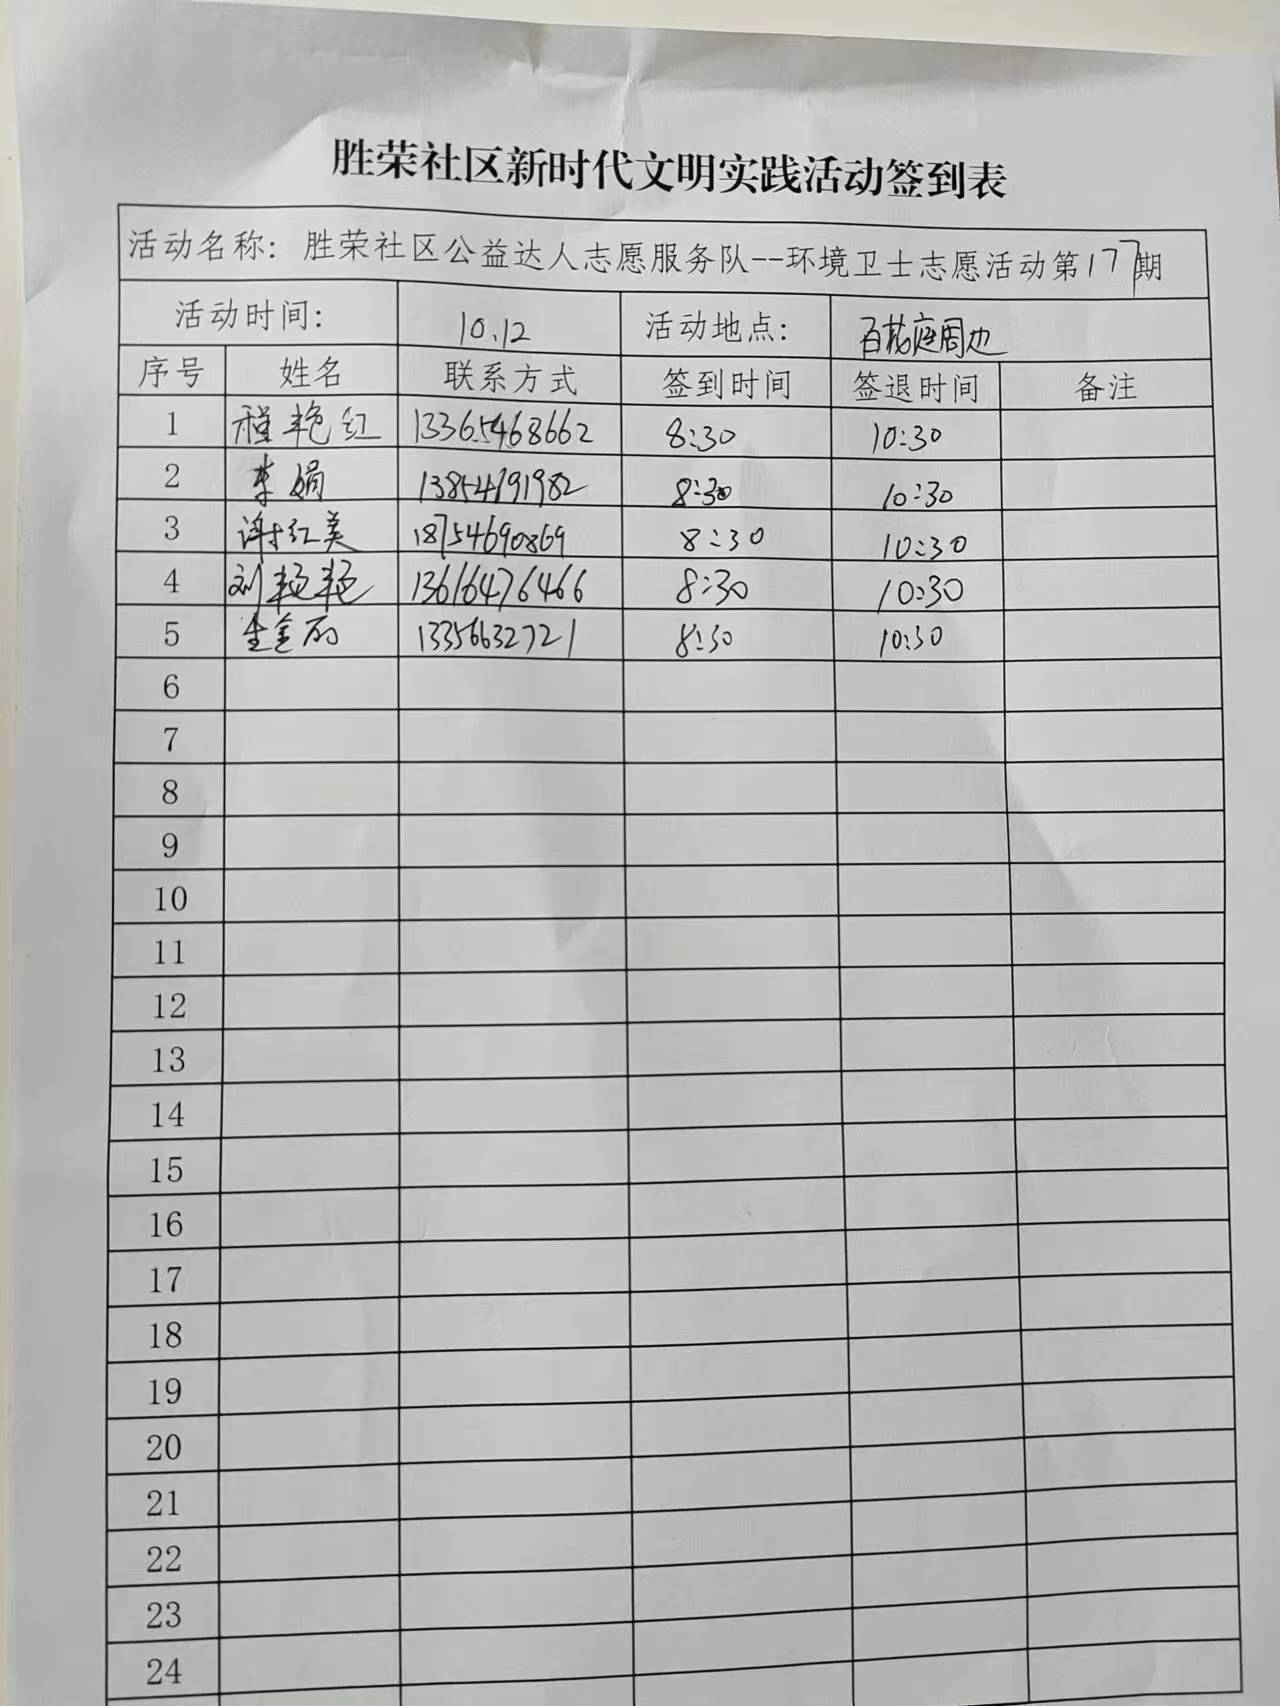 胜荣社区新时代文明实践活动签到表
活动名称：胜荣社区公益达人志愿服务队--环境卫士志愿活动第177期
活动时间： 10.12 活动地点： 百花庭周边
序号 姓名 联系方式 签到时间 签退时间 备注
1 程艳红 13365468662 8:30 10:30
2 李娟 13854791982 8:30 10:30
3 谢红美 18754690869 8:30 10:30
4 刘艳艳 13616476466 8:30 10:30
5 13356632721 8:30 10:30
6
7
8
9
10
11
12
13
14
15
16
17
18
19
20
21
22
23
24